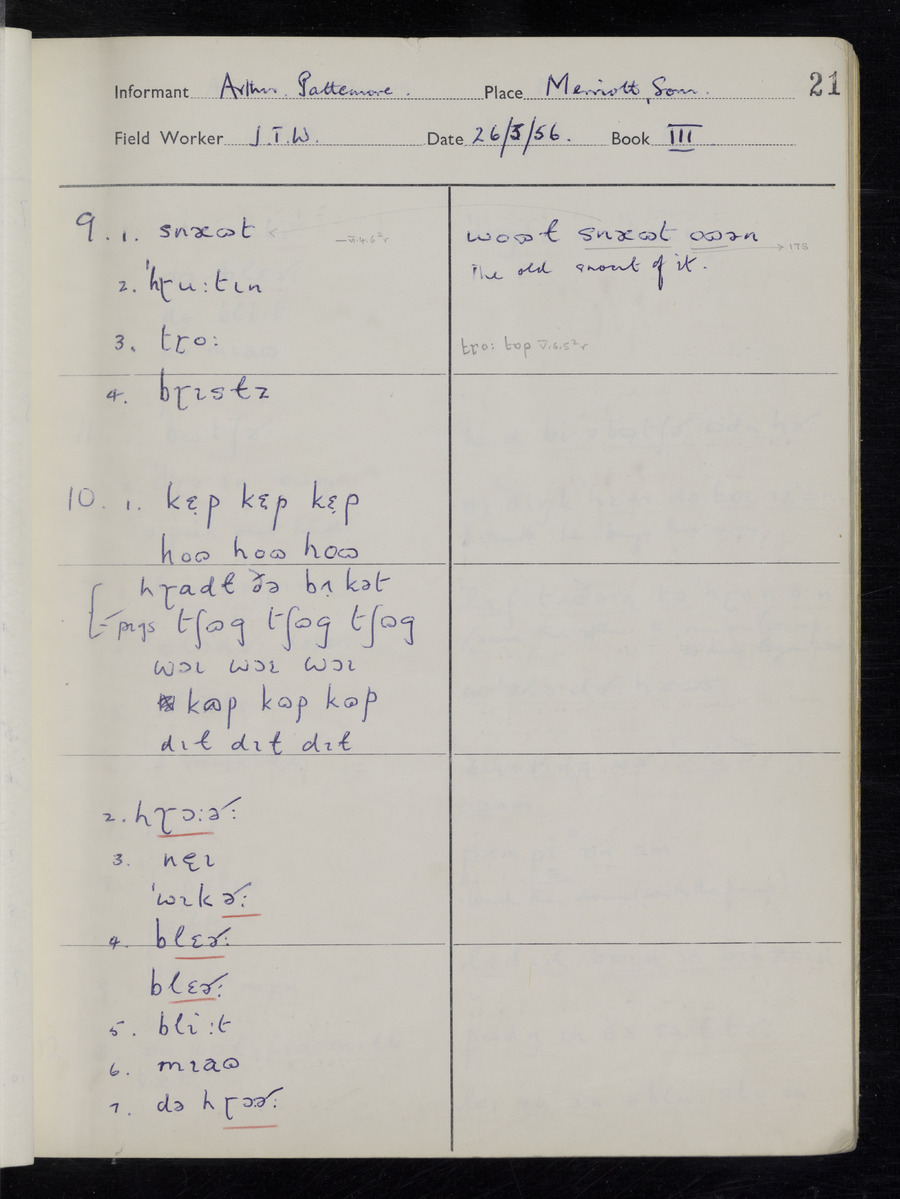 Informant Arthur. Pattemore. Place Merriott, Som. 21
Field Worker J.T.W. Date 26/3/56. Book III
9. 1. snæɷt
2. ˈhɽu:tɩn
3. tɽo:
4. bɽɩstz
10. 1. kɛ̣p kɛ̣p kɛ̣p
hoɷ hoɷ hoɷ
hɽadɫ ðə bʌ̣kət
pigs tʃɷg tʃɷg tʃɷg
wɔɩ wɔɩ wɔɩ
kɷp kɷp kɷp
dɩɫ dɩɫ dɩɫ
2. hɽɔ:ə˞:
3. nɛ̣ɩ
ˈwɩkə˞:
4. blɛə˞:
blɛə˞:
5. bli:t
6. mɩaɷ
7. də hɽɔə˞:
woɷɫ snæɷt oɷən
The old snout of it.
tɽo: tɒp V.6.5²r